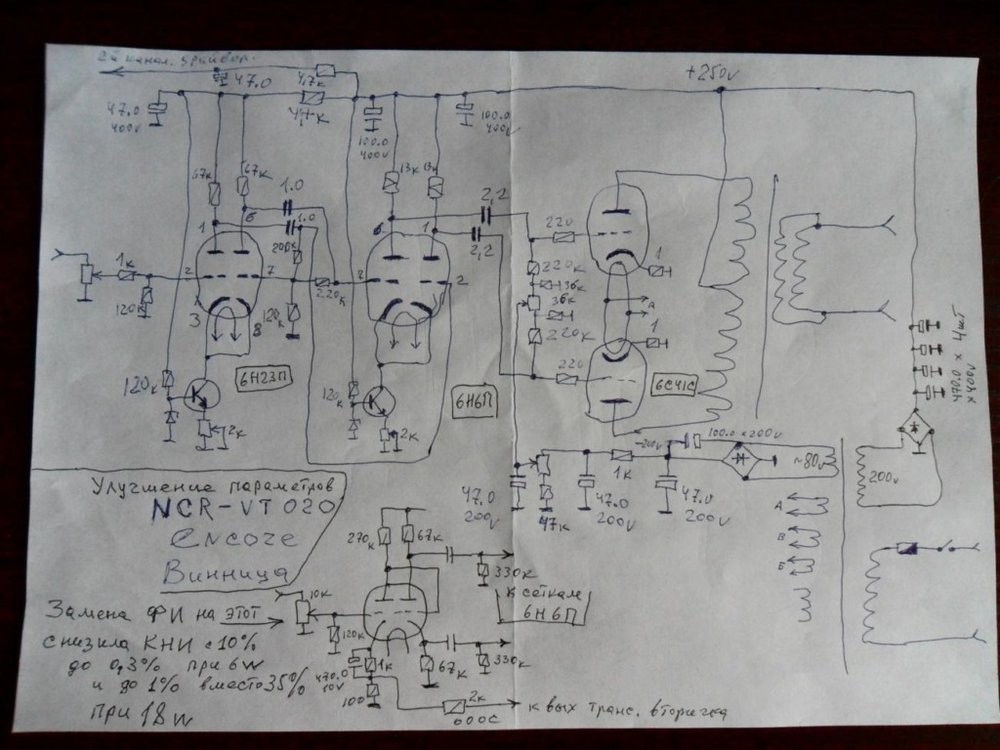 2й канал. драйвер.
47.0
4,7к
+250v
47.0
400v
4,7к
100.0
400v
100.0
400v
67к
67к
13к
13к
1.0
2,2
1
6
1.0
6
1
2,2
220
200к
220к
1
1к
2
7
220к
2
36к
A
120к
3
8
120к
220к
1
120к
6Н23П
120к
220
6С41С
6Н6П
470.0 х 4шт
х400v
2к
2к
100.0 x 200v
-200v
~80v
200v
1к
47.0
200v
47к
47.0
200v
47.0
200v
A
B
Б
Улучшение параметров
NCR-VT 020
encore
Винница
270к
67к
330к
к сеткам
6Н6П
10к
Замена ФИ на этот
120к
снизила КНИ с 10%
до 0,3% при 6w
1к
67к
330к
и до 1% вместо 35%
470.0
10v
100
2к
ООС
к вых транс. вторичка
при 18w